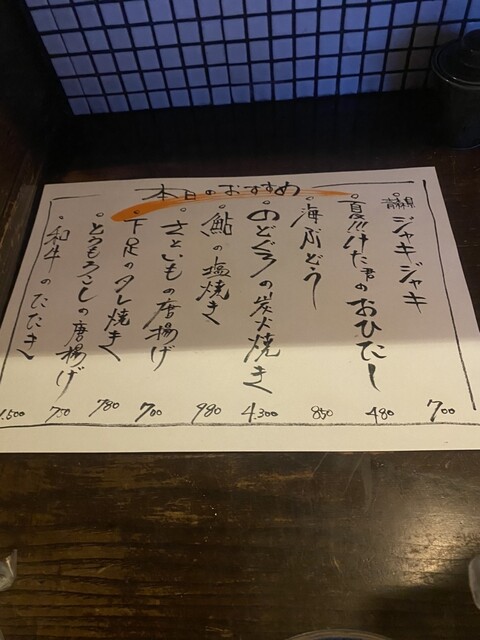 本日のおすすめ
ジャキジャキ 700
夏!!! のおひたし 480
海ぶどう 850
のどぐろの炭火焼き 4,300
鮎の塩焼き 980
さといもの唐揚げ 700
下足のタレ焼き 780
とうもろこしの唐揚げ 750
和牛のたたき 1,500